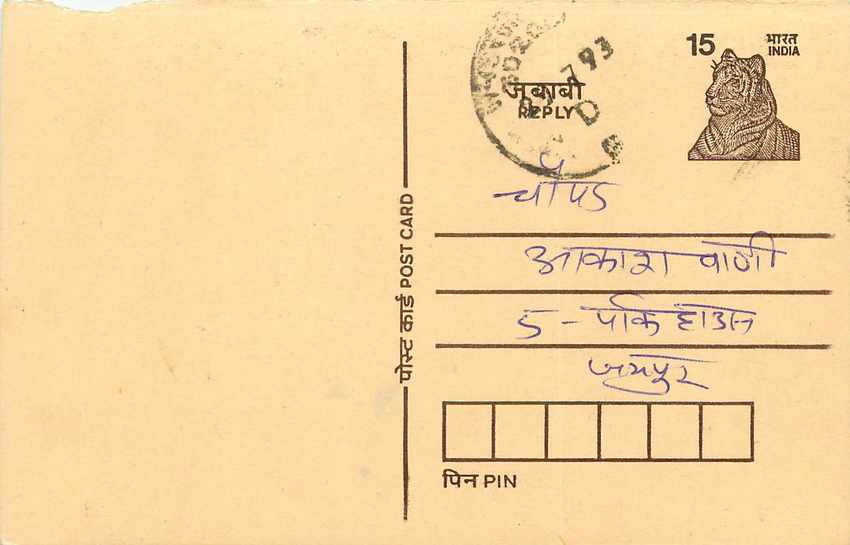 15 भारत
INDIA
जवाबी
REPLY
7 93
D
चौपड
आकाशवाणी
5 - पार्क हाउस
जयपुर
पोस्ट कार्ड POST CARD
पिन PIN